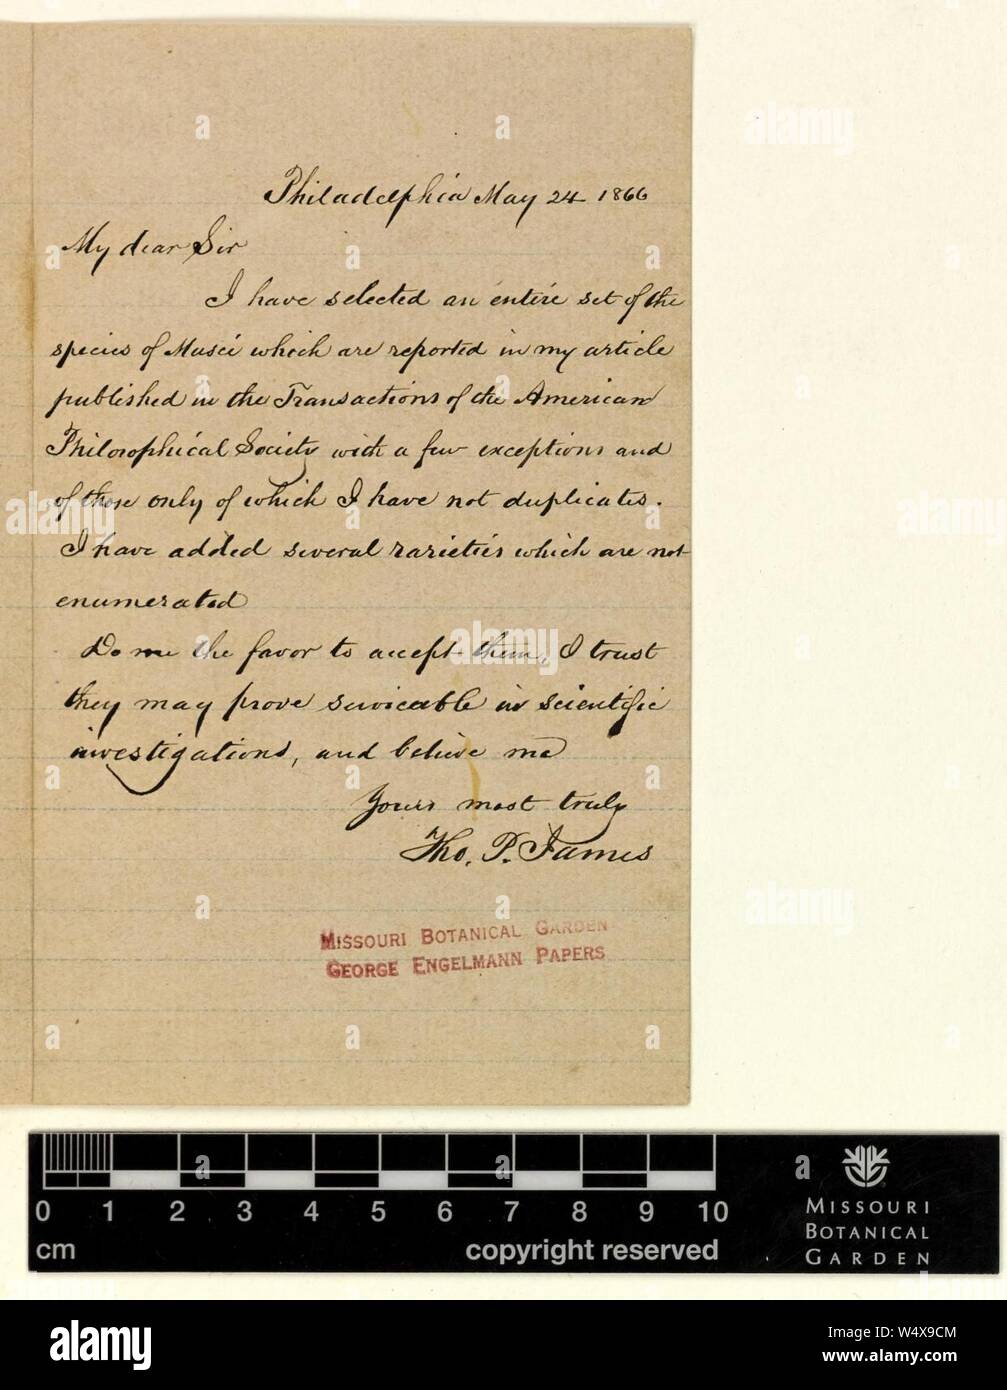 Philadelphia May 24 1866
My dear Sir
I have selected an entire set of the
species of Musci which are reported in my article
published in the Transactions of the American
Philosophical Society with a few exceptions and
of those only of which I have not duplicates.
I have added several rarieties which are not
enumerated
Do me the favor to accept them, I trust
they may prove serviceable in scientific
investigations, and believe me
Yours most truly
Tho. P. James
MISSOURI BOTANICAL GARDEN
GEORGE ENGELMANN PAPERS
0 1 2 3 4 5 6 7 8 9 10
cm copyright reserved
MISSOURI
BOTANICAL
GARDEN
alamy
Image ID: W4X9CM
www.alamy.com